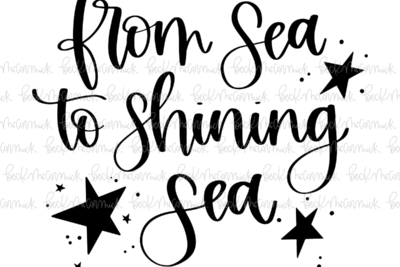 from sea
to shining
sea